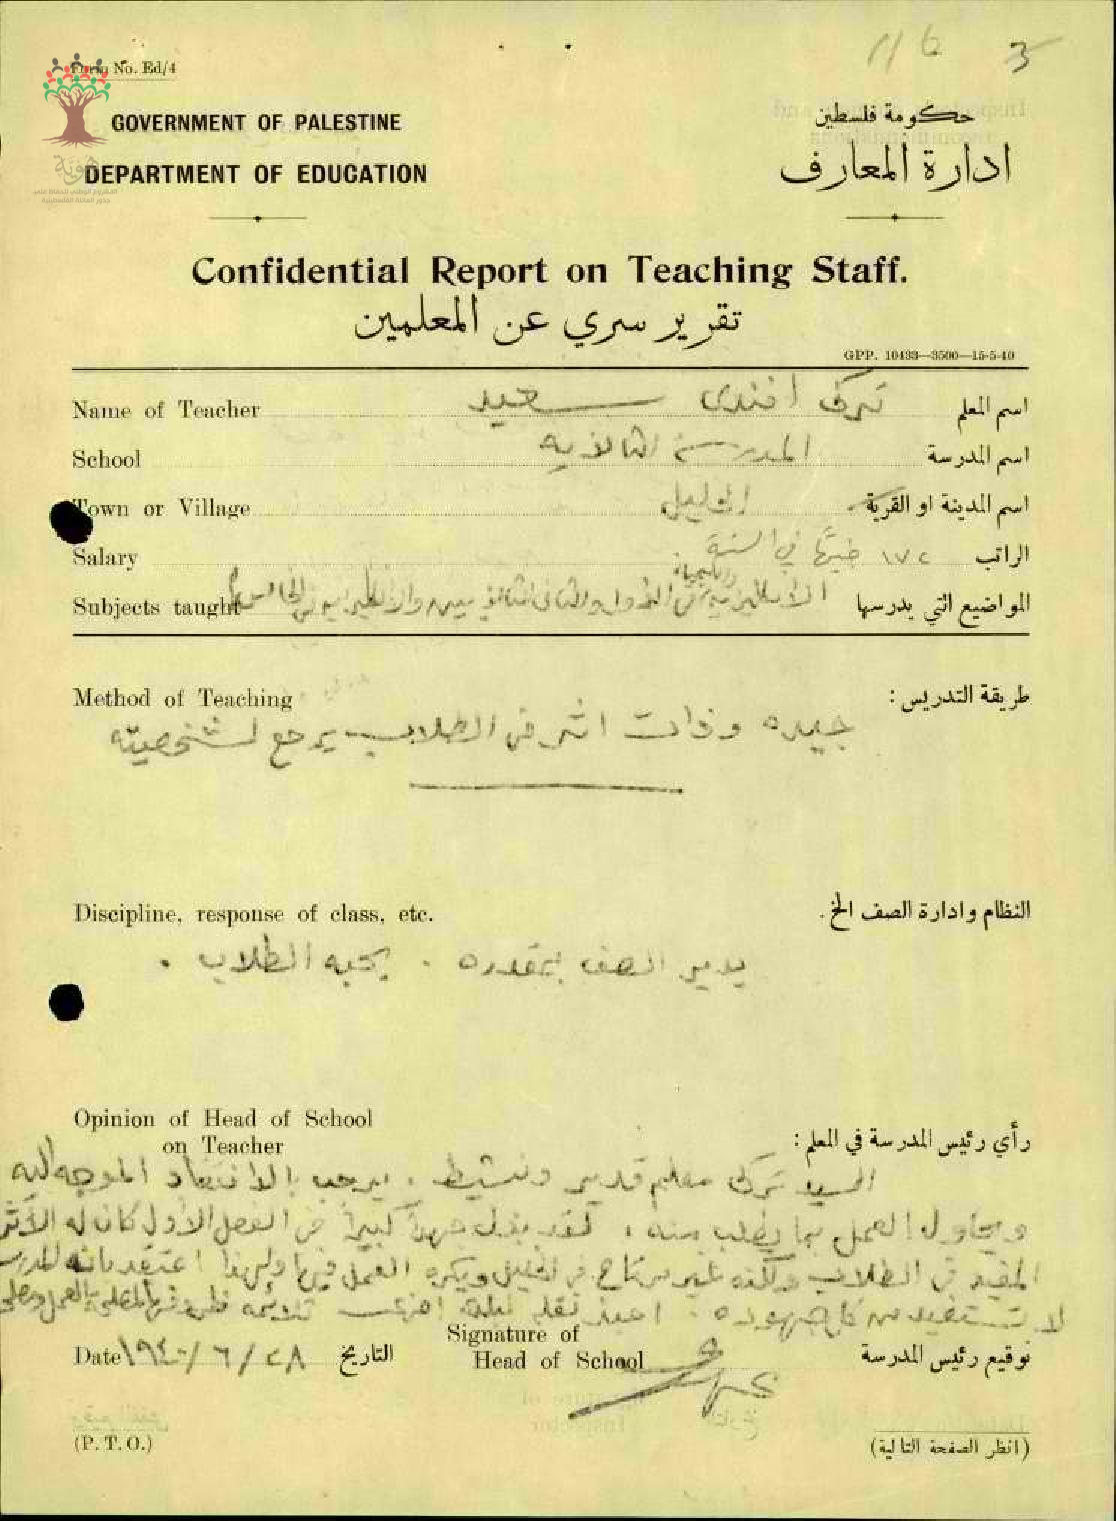 11 6 3
Form No. Ed/4
GOVERNMENT OF PALESTINE
حكومة فلسطين
DEPARTMENT OF EDUCATION
ادارة المعارف
هوية
Confidential Report on Teaching Staff.
تقرير سري عن المعلمين
GPP. 10433—3500—15-5-40
Name of Teacher تركي افندي سعيد اسم المعلم
School المدرسة الثانويه اسم المدرسة
Town or Village الخليل اسم المدينة او القرية
Salary ١٧٢ جنيهًا في السنة الراتب
Subjects taught الانكليزية في الاول والثاني الثانويين المواضيع التي يدرسها
Method of Teaching طريقة التدريس:
جيده وذات اثر في الطلاب يرجع لشخصيته
Discipline, response of class, etc. النظام وادارة الصف الخ.
يدير الصف بمقدره . يحبه الطلاب .
Opinion of Head of School
on Teacher رأي رئيس المدرسة في المعلم:
السيد تركي معلم قدير ونشيط . يرحب بالانتقاد الموجه اليه
ويحاول العمل بما يطلب منه . لقد بذل جهداً كبيراً في الفصل الأول كان له الأثر
المفيد في الطلاب ولكنه غير مرتاح في الخليل ويكره العمل فيها ولهذا اعتقد بانه
لا تستفيد من كل جهوده . احبذ نقله لبلدة اخرى تلائمه
Signature of
Date ١٩٤٠/٦/٢٨ التاريخ Head of School توقيع رئيس المدرسة
(P. T. O.) (انظر الصفحة التالية)